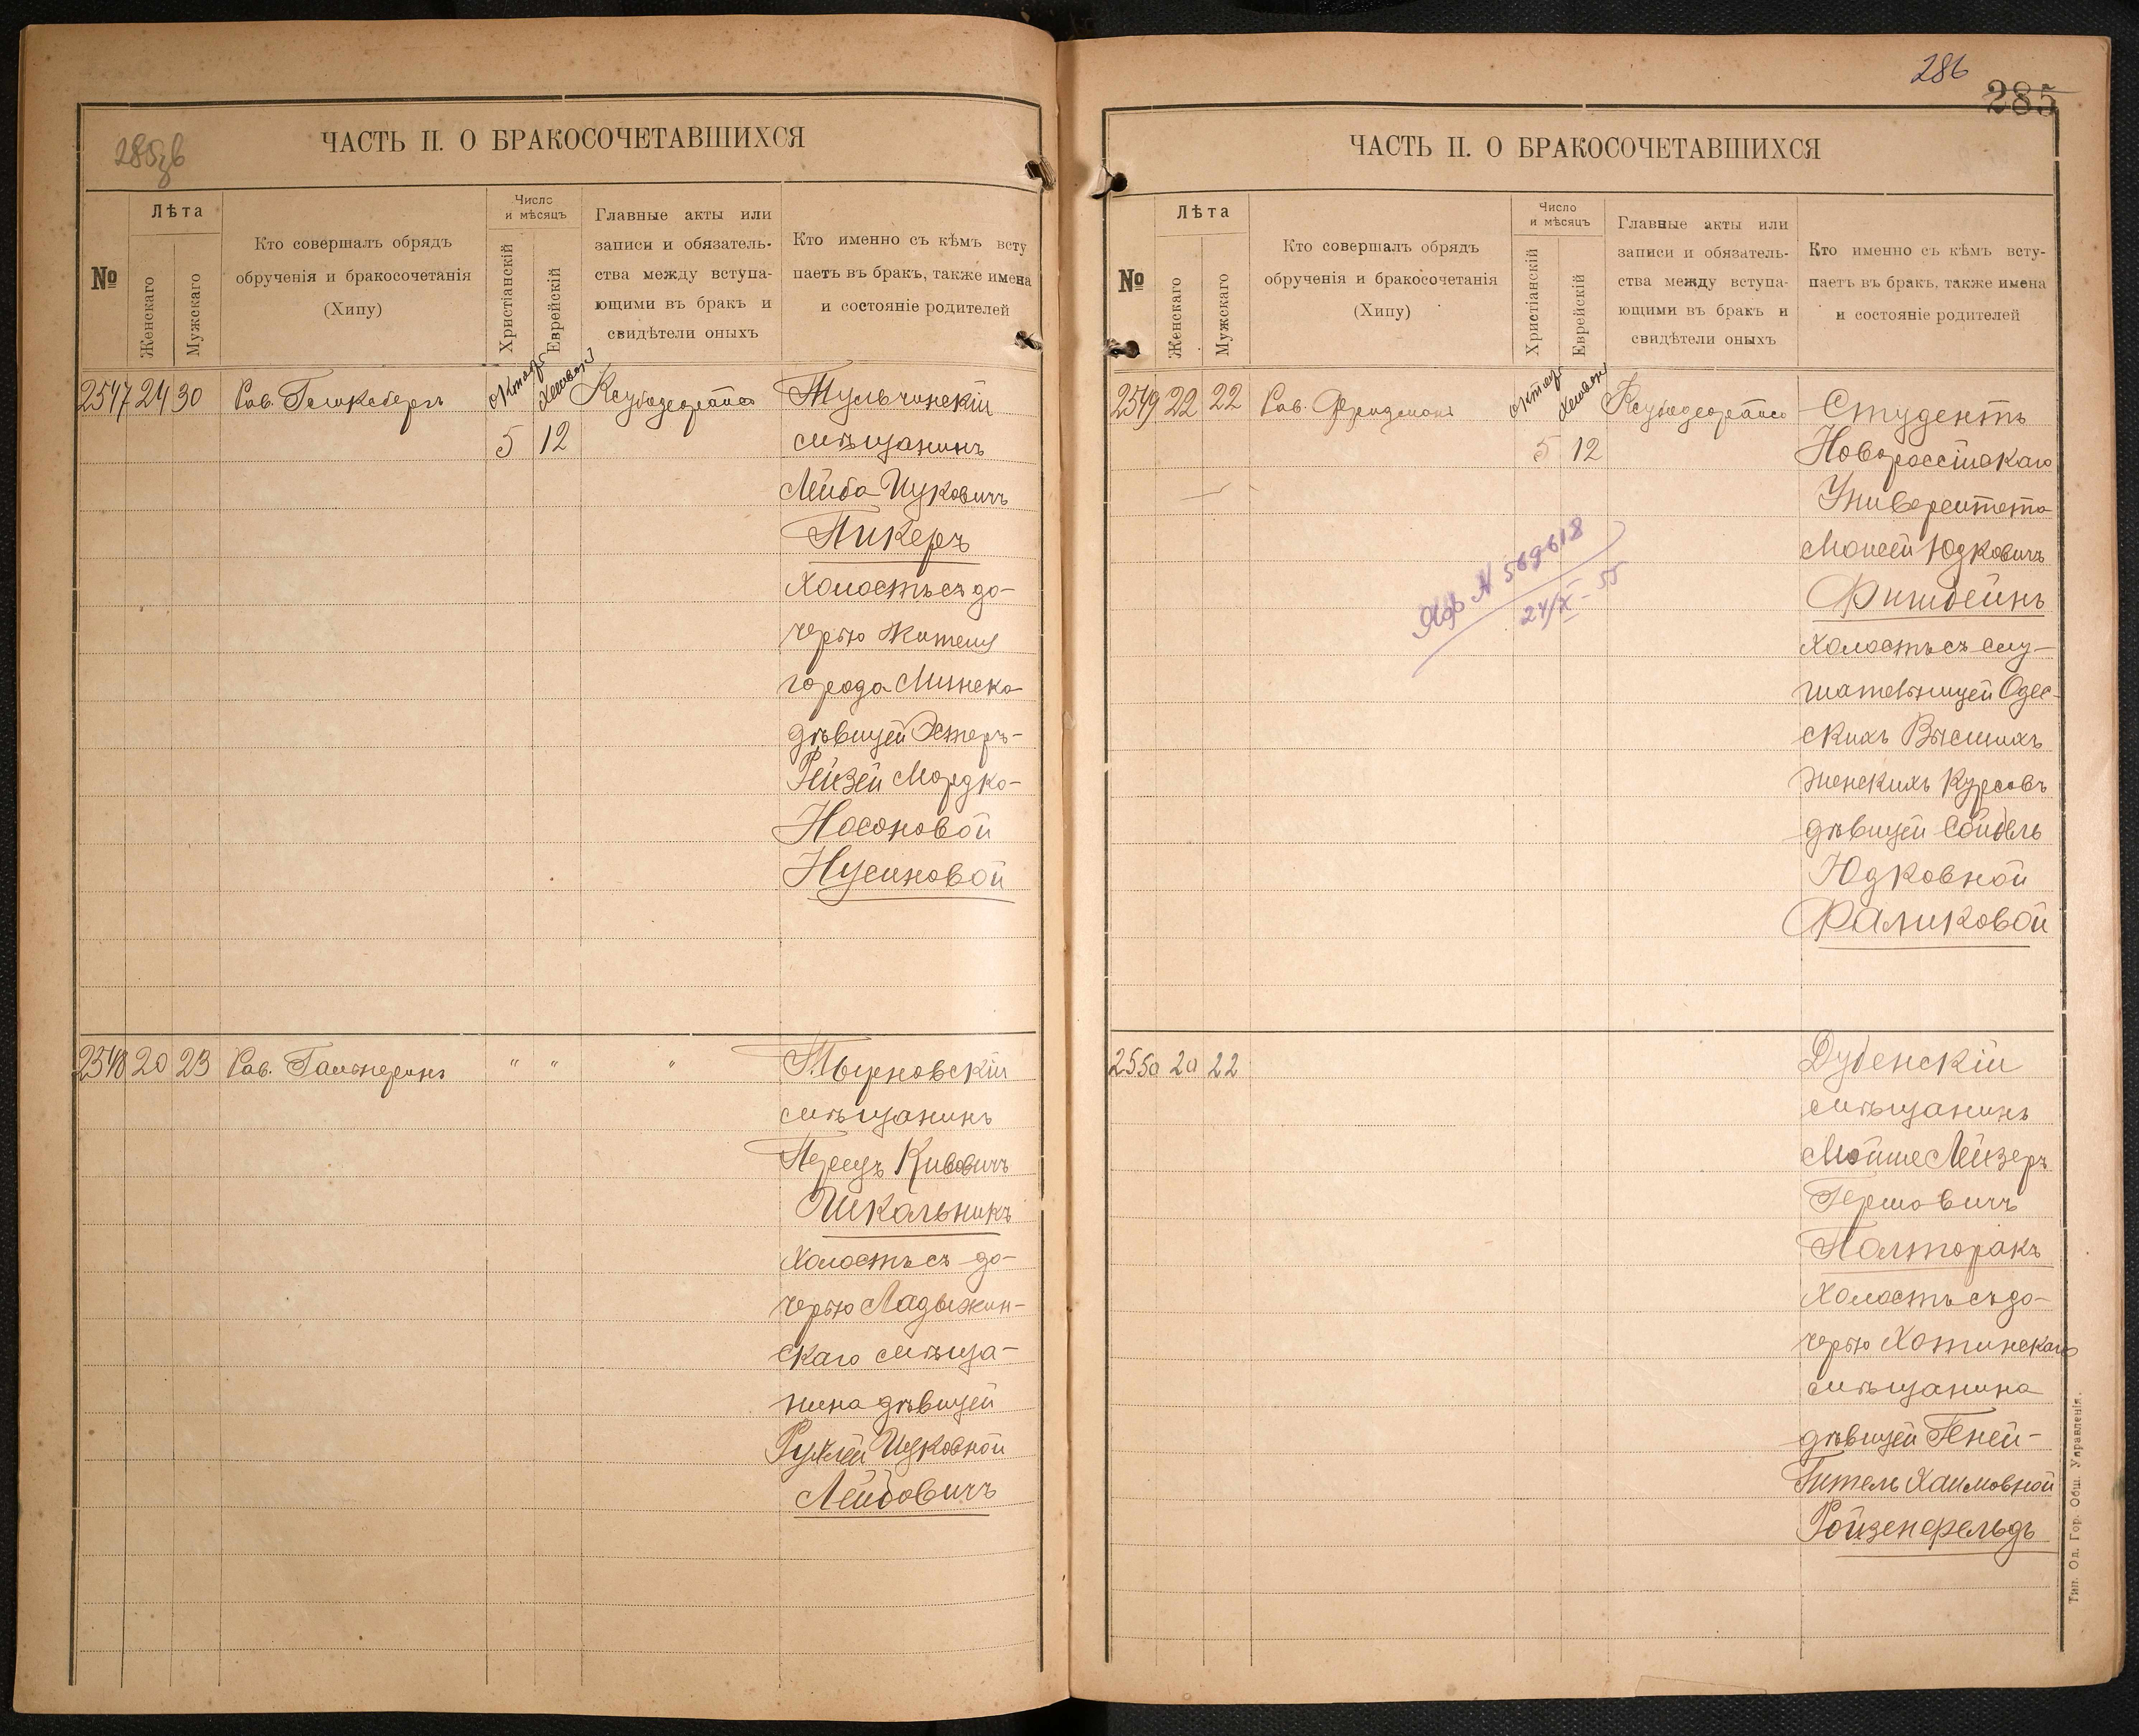 285об
ЧАСТЬ II. О БРАКОСОЧЕТАВШИХСЯ
№
Лѣта
Женскаго
Мужскаго
Кто совершалъ обрядъ
обрученія и бракосочетанія
(Хипу)
Число
и мѣсяцъ
Христіанскій
Еврейскій
Главные акты или
записи и обязатель-
ства между вступа-
ющими въ бракъ и
свидѣтели оныхъ
Кто именно съ кѣмъ всту
паетъ въ бракъ, также имена
и состояніе родителей
2547 24 30 Рав. Гликсбергъ
Тульчинскій
5 12 мѣщанинъ
Лейба Ицковичъ
Пикеръ
холостъ съ до-
черью жителя
города Минска
дѣвицей Эстеръ-
Рейзей Мордко-
Носоновой
Нусиновой
2548 20 23 Рав. Гальперинъ " " " Тырновскій
мѣщанинъ
Перецъ Кивовичъ
Шкальникъ
холостъ съ до-
черью Ладыжин-
скаго мѣща-
нина дѣвицей
Рухлей Ицковной
Лейбовичъ
286
285
ЧАСТЬ II. О БРАКОСОЧЕТАВШИХСЯ
№
Лѣта
Женскаго
Мужскаго
Кто совершалъ обрядъ
обрученія и бракосочетанія
(Хипу)
Число
и мѣсяцъ
Христіанскій
Еврейскій
Главные акты или
записи и обязатель-
ства между вступа-
ющими въ бракъ и
свидѣтели оныхъ
Кто именно съ кѣмъ всту-
паетъ въ бракъ, также имена
и состояніе родителей
2549 22 22 Рав. Фридманъ
Студентъ
5 12 Новороссійскаго
Университета
Моисей Юдковичъ
Фишбейнъ
холостъ съ слу-
шательницей Одес-
скихъ Высшихъ
Женскихъ Курсовъ
дѣвицей Сойбель
Юдковной
Фаликовой
N 569618
24/X-55
2550 20 22 Дубенскій
мѣщанинъ
Мойше Лейзеръ
Гершовичъ
Полторакъ
холостъ съ до-
черью Хотинскаго
мѣщанина
дѣвицей Геней-
Гитель Хаимовной
Ройзенфельдъ
Тип. Од. Гор. Общ. Управленія.